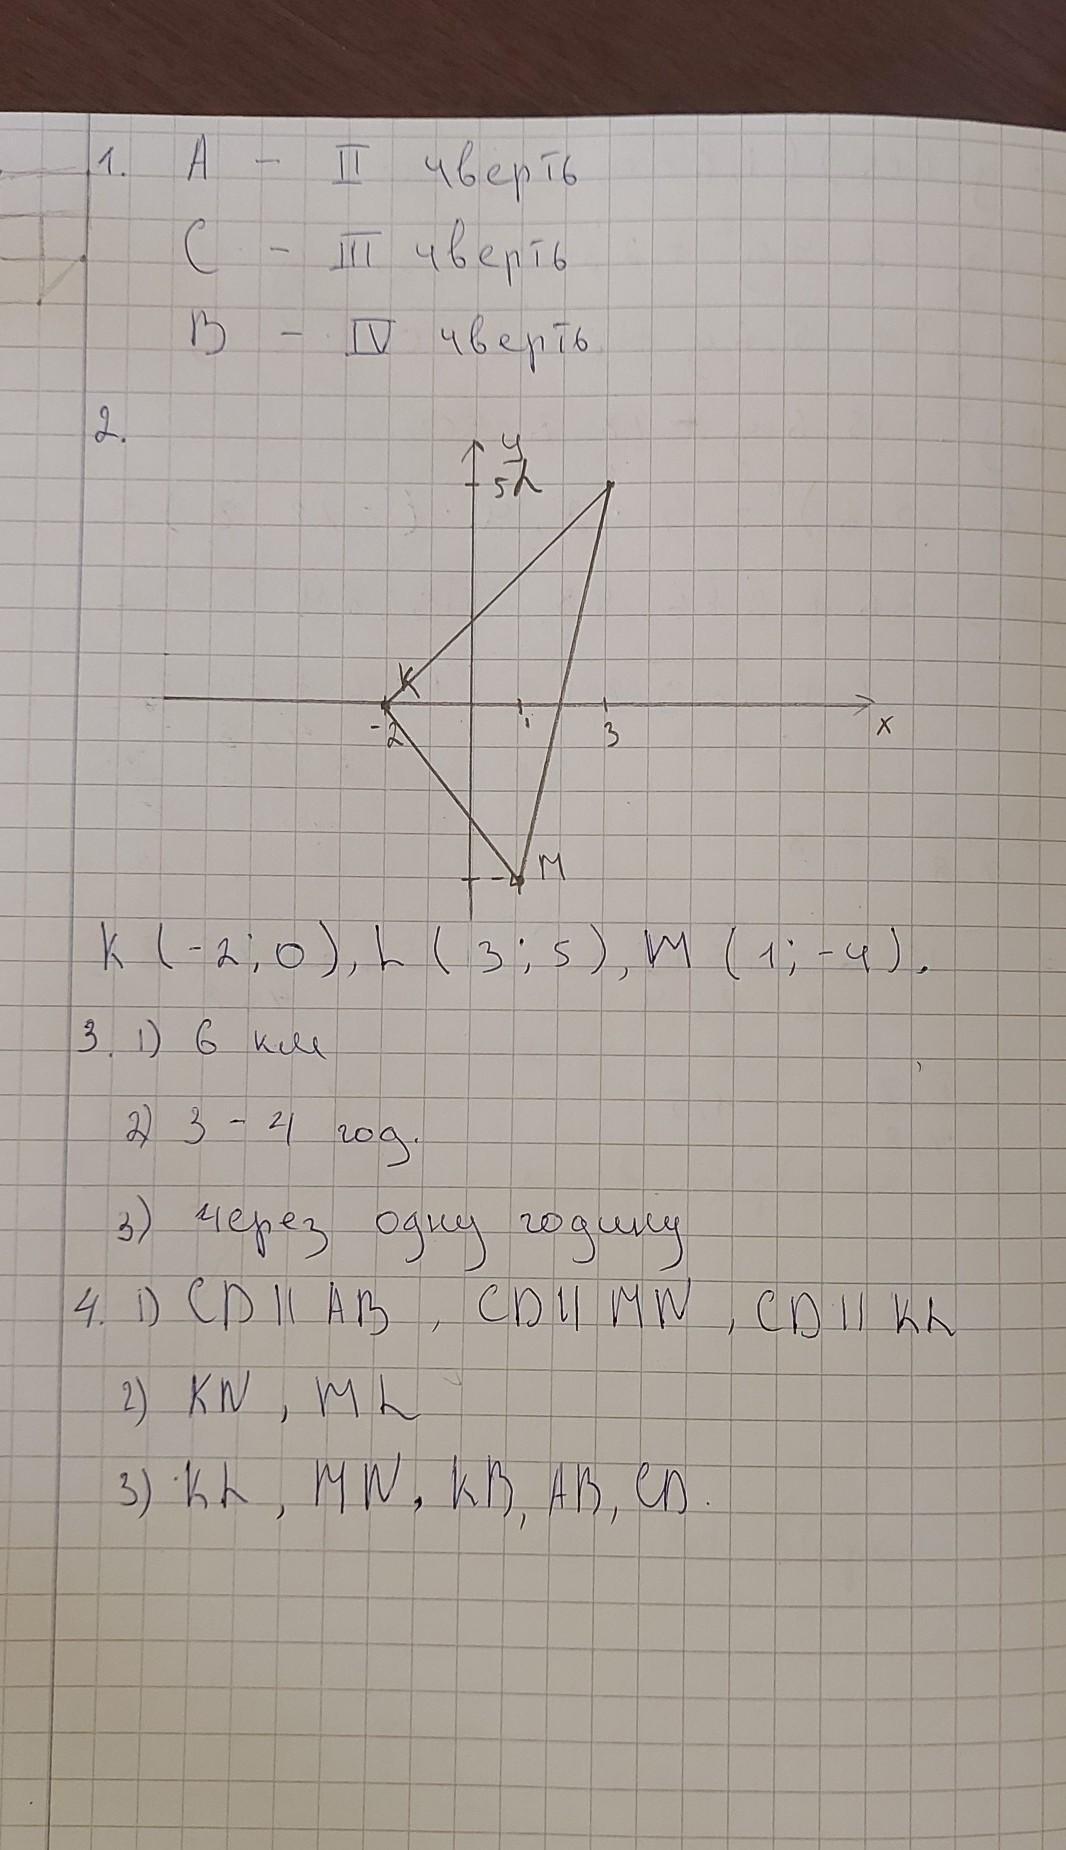 1. A - II чверть
C - III чверть
B - IV чверть
2.
y
5 L
K
-2 1 3 x
M
K (-2; 0), L (3; 5), M (1; -4).
3. 1) 6 км
2) 3 - 4 год.
3) через одну годину
4. 1) CD || AB, CD || MN, CD || KL
2) KN, ML
3) KL, MN, KB, AB, CD.